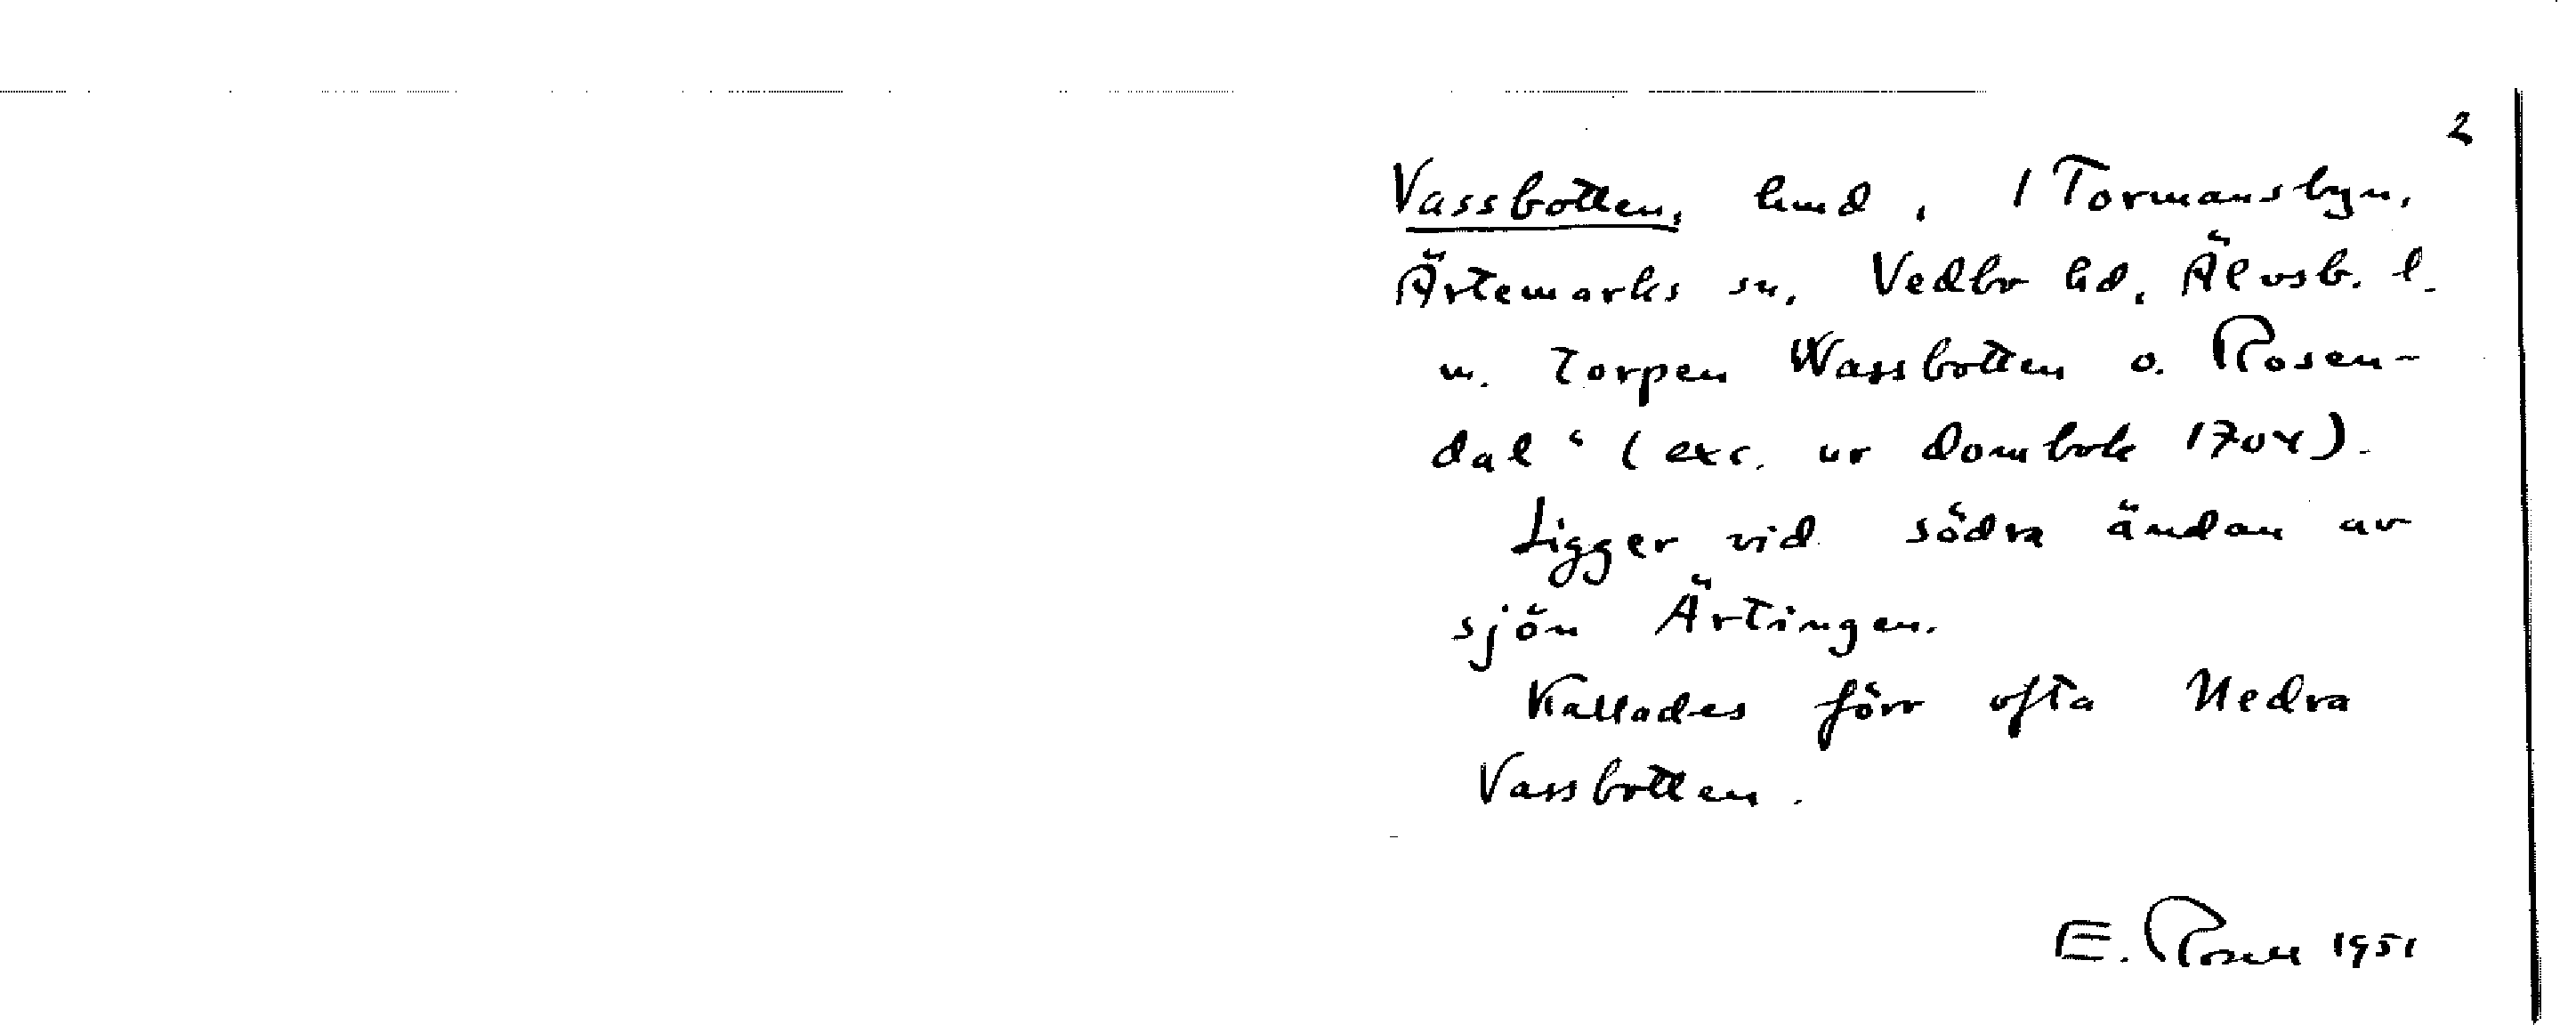 2
Vassbotten, hmd, 1 Tormansbyn,
Ärtemarks sn, Vedbo hd, Älvsb. l.
m. torpen Wassbotten o. Rosen-
dal" (exc. ur dombok 1704).
Ligger vid södra ändan av
sjön Ärtingen.
Kallades förr ofta Nedra
Vassbotten.
E. Rosell 1951